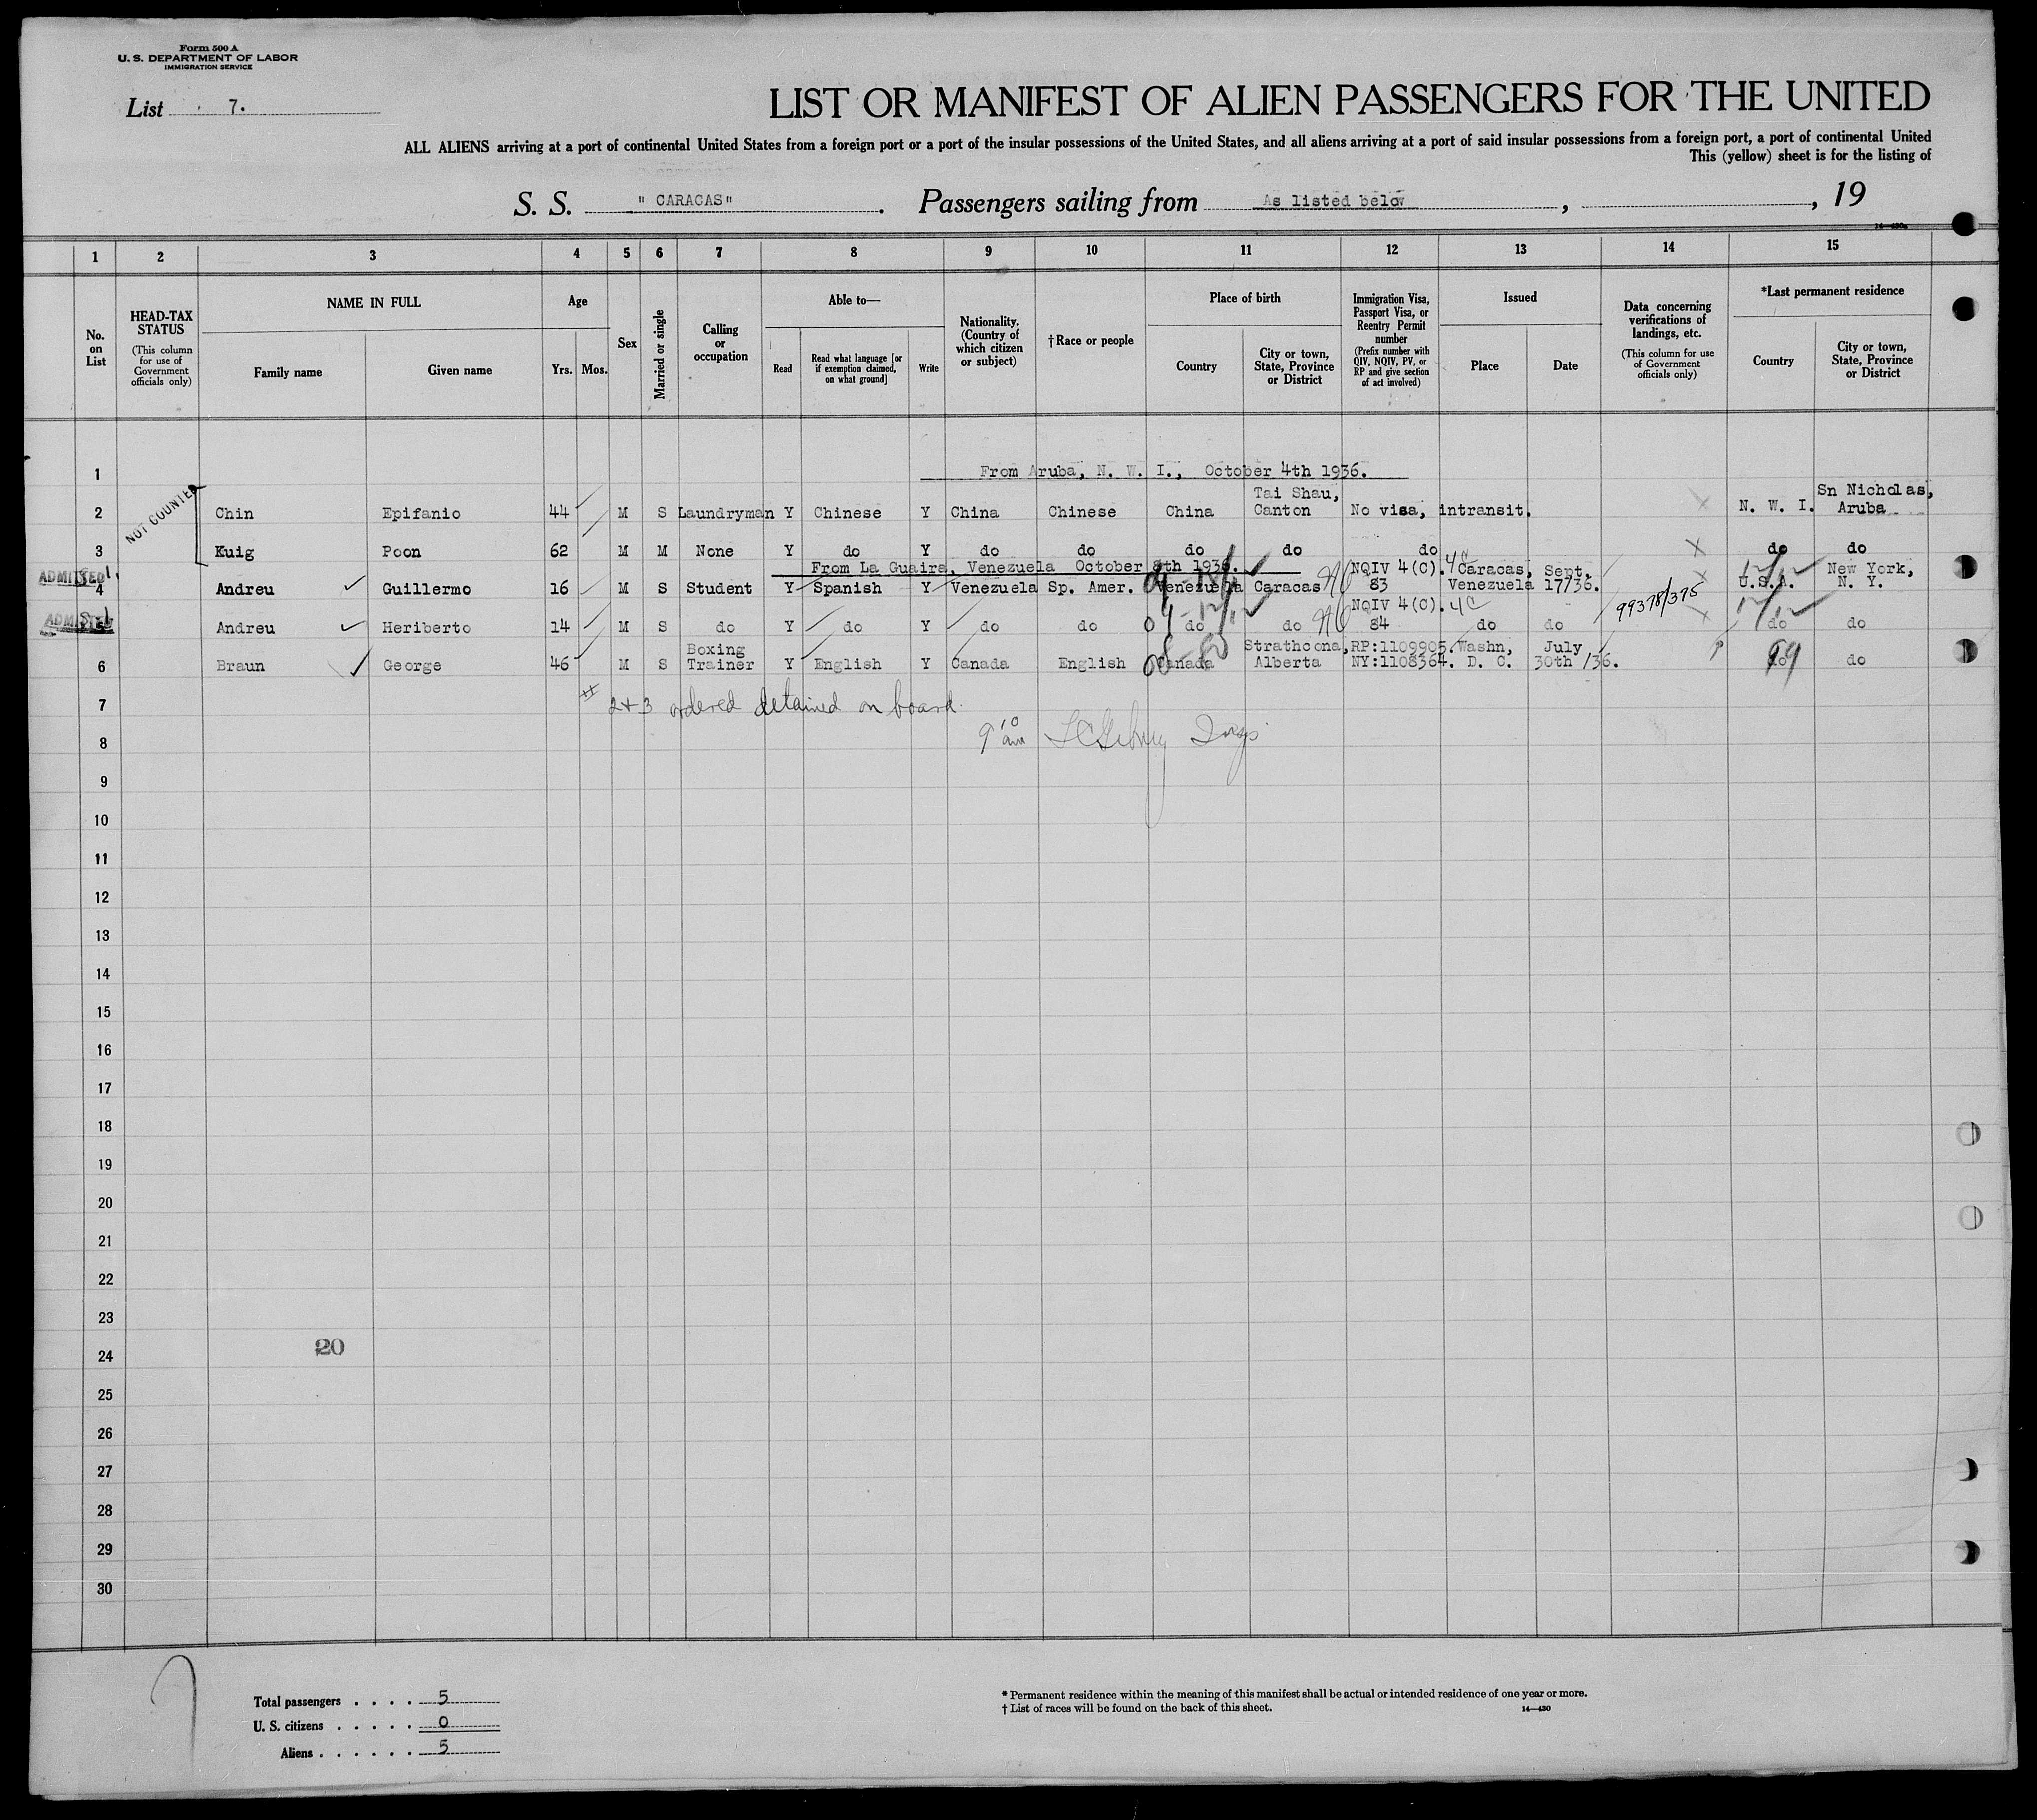 Form 500 A
U. S. DEPARTMENT OF LABOR
IMMIGRATION SERVICE
List 7.
LIST OR MANIFEST OF ALIEN PASSENGERS FOR THE UNITED
ALL ALIENS arriving at a port of continental United States from a foreign port or a port of the insular possessions of the United States, and all aliens arriving at a port of said insular possessions from a foreign port, a port of continental United
This (yellow) sheet is for the listing of
S. S. "CARACAS". Passengers sailing from As listed below, , 19
14—430a
1 2 3 4 5 6 7 8 9 10 11 12 13 14 15
No. on List
HEAD-TAX STATUS
(This column for use of Government officials only)
NAME IN FULL
Family name
Given name
Age
Yrs.
Mos.
Sex
Married or single
Calling or occupation
Able to—
Read
Read what language [or if exemption claimed, on what ground]
Write
Nationality. (Country of which citizen or subject)
†Race or people
Place of birth
Country
City or town, State, Province or District
Immigration Visa, Passport Visa, or Reentry Permit number
(Prefix number with QIV, NQIV, PV, or RP and give section of act involved)
Issued
Place
Date
Data concerning verifications of landings, etc.
(This column for use of Government officials only)
*Last permanent residence
Country
City or town, State, Province or District
1 From Aruba, N. W. I., October 4th 1936.
NOT COUNTED
Tai Shau, Sn Nicholas,
2 Chin Epifanio 44 M S Laundryman Y Chinese Y China Chinese China Canton No visa, intransit. N. W. I. Aruba
3 Kuig Poon 62 M M None Y do Y do do do do do do do
From La Guaira, Venezuela October 8th 1936.
ADMITTED NQIV 4(C). 4C Caracas, Sept. New York,
4 Andreu Guillermo 16 M S Student Y Spanish Y Venezuela Sp. Amer. Venezuela Caracas 83 Venezuela 17/36. U.S.A. N. Y.
NQIV 4(C). 4C 99378/375
ADMITTED Andreu Heriberto 14 M S do Y do Y do do do do 84 do do do do
Boxing Strathcona, RP:1109905. Washn, July
6 Braun George 46 M S Trainer Y English Y Canada English Canada Alberta NY:1108364. D. C. 30th/36. do do
99
7 2+3 ordered detained on board.
8 9 10 am
9
10
11
12
13
14
15
16
17
18
19
20
21
22
23
24 20
25
26
27
28
29
30
Total passengers . . . . 5
U. S. citizens . . . . . 0
Aliens . . . . . . 5
* Permanent residence within the meaning of this manifest shall be actual or intended residence of one year or more.
† List of races will be found on the back of this sheet.
14—430